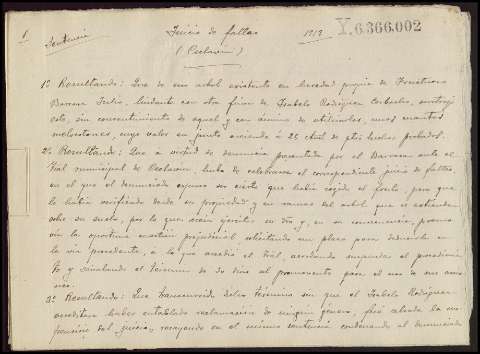 1
Sentencia
Juicio de faltas
(Ceclavín)
1912
Y.6366.002
1º Resultando: Que de un arbol existente en heredad propia de
Barrosa Julio, lindante con otra finca de Isabelo Rodríguez, sustrajo
este, sin consentimiento de aquel y con ánimo de utilizarlos, unos cuantos
melocotones, cuyo valor en junto asciende á 25 de pta hechos probados.
2º Resultando: Que á virtud de denuncia presentada por el Barrosa ante el
municipal de Ceclavín, hubo de celebrarse el correspondiente juicio de faltas
en el que el denunciado expuso ser cierto que había cogido el fruto, pero que
lo había verificado desde su propiedad y en ramas del arbol que se extienden
sobre su suelo, por lo que en y, en su consecuencia,
la oportuna cuestion prejudicial solicitando un plazo para deducirla en
la via procedente, á lo que accedió el acordando suspender el procedimien
to y señalando el término de dos dias al promovente para el uso de sus accio
nes.
3º Resultando: Que transcurrido dicho término sin que el Isabelo Rodríguez
acreditara haber entablado reclamacion de ningun género, fué alzada la sus
pension del juicio, recayendo en el mismo sentencia condenando al denunciado